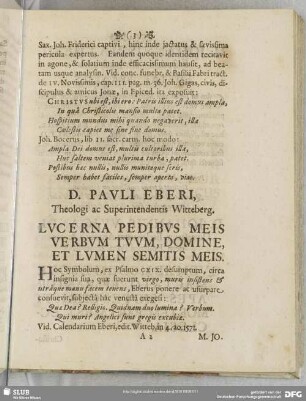 (3)
Sax. Joh. Friderici captivi, hinc inde jactatus & sævissima
pericula expertus. Eandem quoque identidem recitavit
in agone, & solatium inde efficacissimum hausit, ad bea-
tam usque analysin. Vid. conc. funebr. & Basilii Fabri tract.
de IV. Novissimis, cap. III. pag. m. 56. Joh. Gigas, civis, di-
scipulus & amicus Jonæ, in Epiced. ita exposuit:
CHRISTUS ubi est, ibi ero: Patris illius est domus ampla,
In quâ Christicolis mansio multa patet.
Hospitium mundus mihi quando negaverit, illa
Cœlestis capiet me sine fine domus.
Joh. Bocerus, lib. II. sacr. carm. hoc modo:
Ampla Dei domus est, multis cultoribus illa,
Huc saltem veniat plurima turba, patet.
Postibus hæc nullis, nullis munitaque seris,
Semper habet faciles, semper aperta, vias.
D. PAULI EBERI,
Theologi ac Superintendentis Witteberg.
LVCERNA PEDIBVS MEIS
VERBVM TVVM, DOMINE,
ET LVMEN SEMITIS MEIS.
Hoc Symbolum, ex Psalmo CXIX. desumptum, circa
insignia sua, quæ fuerunt virgo, muris insistens &
utráque manu facem tenens, Eberus ponere ac usurpare
consuevit, subjectâ hâc venustâ exegesi:
Quæ Dea? Religio. Quidnam duo lumina? Verbum.
Qui muri? Angelici sunt gregis excubiæ.
Vid. Calendarium Eberi, edit. Witteb. in 4. ao. 1571.
A 2
M. JO.
SLUB